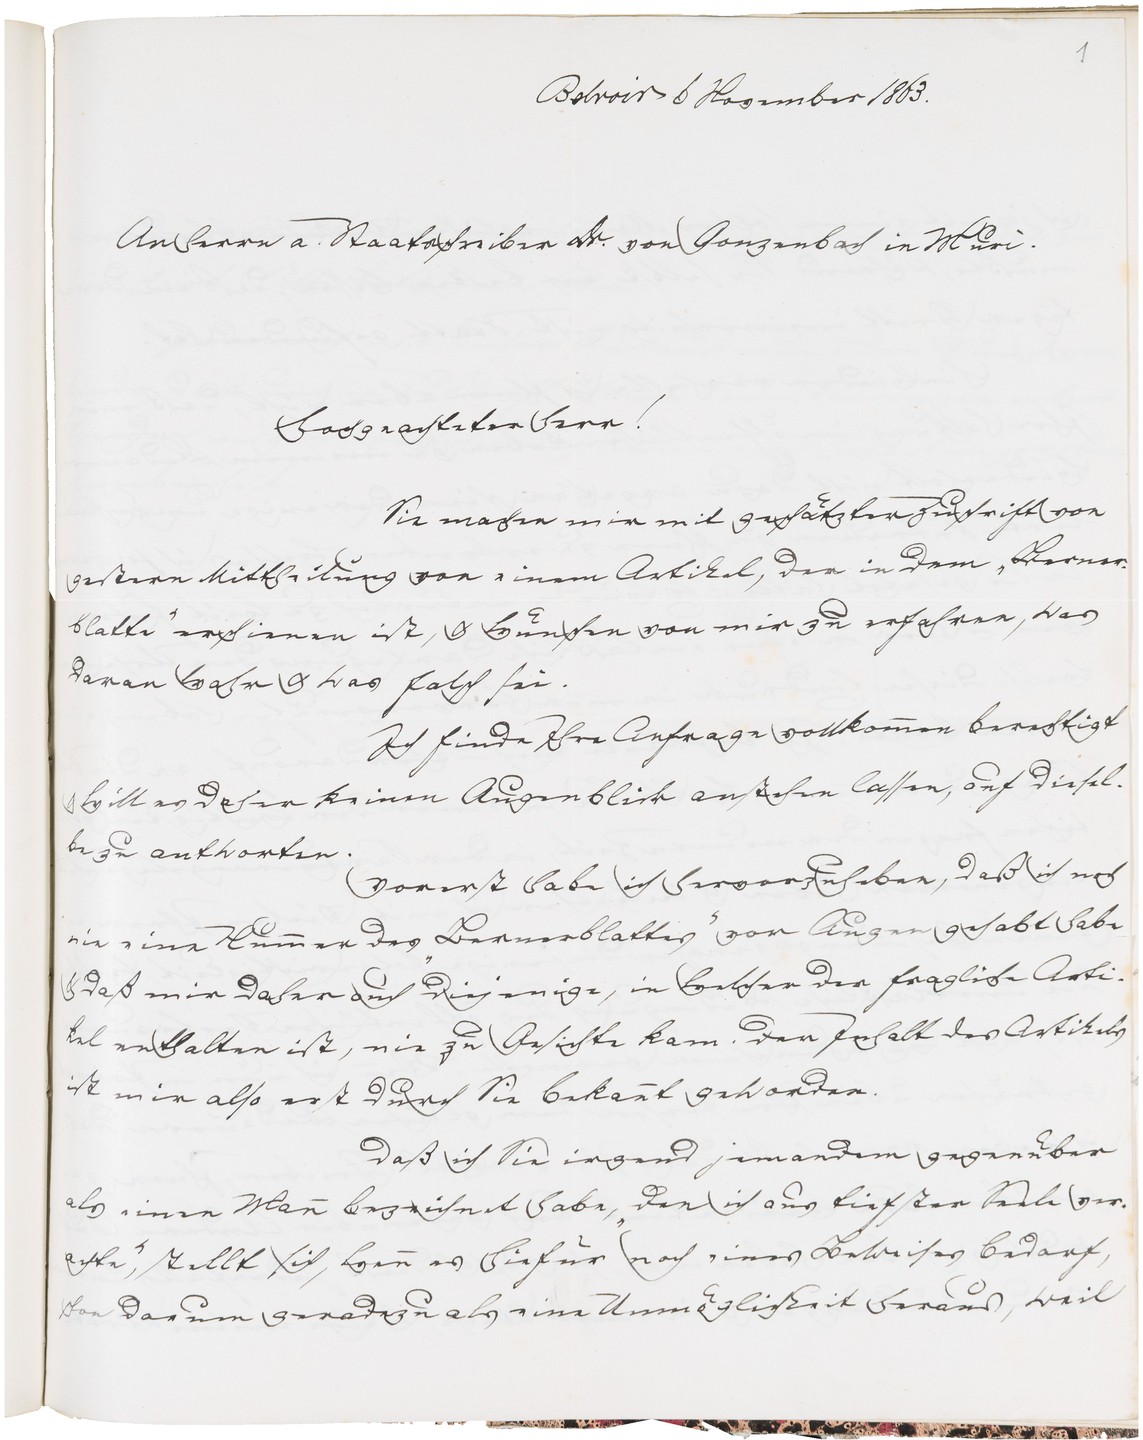 1
Belvoir 6 November 1863.
An Herrn a. Staatsschreiber Dr. von Gonzenbach in Muri.
Hochgeachteter Herr!
Sie machen mir mit geschätzter Zuschrift von
gestern Mittheilung von einem Artikel, der in dem „Berner-
blatte" erschienen ist, & wünschen von mir zu erfahren, was
daran wahr & was falsch sei.
Ich finde Ihre Anfrage vollkom̅en berechtigt
& will es daher keinen Augenblick anstehen lassen, auf diesel-
be zu antworten.
Vorerst habe ich hervorzuheben, daß ich noch
nie eine Num̅er des „Bernerblattes" vor Augen gehabt habe
& daß mir daher auch diejenige, in welcher der fragliche Arti-
kel enthalten ist, nie zu Gesichte kam. Der Inhalt des Artikels
ist mir also erst durch Sie bekan̅t geworden.
Daß ich Sie irgend jemandem gegenüber
als einen Man̅ bezeichnet habe, „den ich aus tiefster Seele ver-
achte", stellt sich, wen̅ es hiefür noch eines Beweises bedarf,
schon darum geradezu als eine Unmöglichkeit heraus, weil